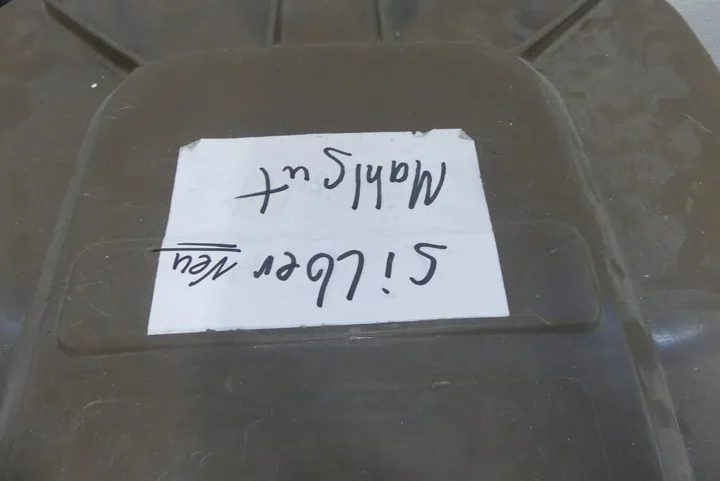 Silber Neu
Mahlgut